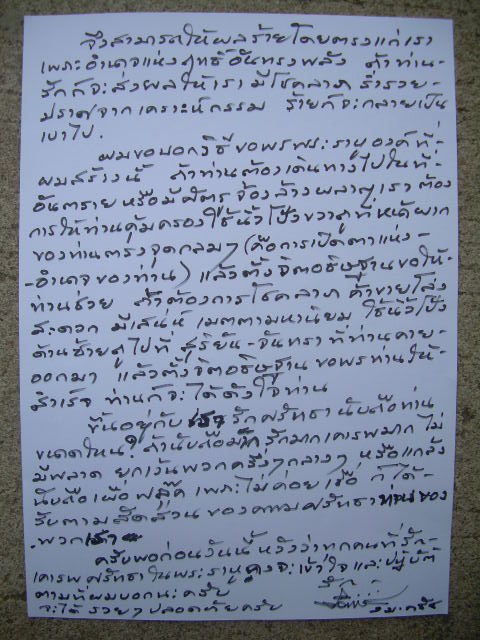 จึงสามารถให้ผลร้ายโดยตรงแก่เรา
เพราะอำนาจแห่งฤทธิ์อันทรงพลัง ถ้าท่าน-
รักก็จะส่งผลให้เรา มีโชคลาภ ร่ำรวย-
ปราศจากเคราะห์กรรม ร้ายก็จะกลายเป็น
เบาไป.
ผมขอบอกวิธีขอพรพระราหูองค์ที่-
ผมสร้างนี้ ถ้าท่านต้องเดินทางไปในที่-
อันตราย หรือมีศัตรูจ้องล้างผลาญเรา ต้อง
การให้ท่านคุ้มครองใช้นิ้วโป้งขวาถูที่หน้าผาก
ของท่านตรงจุดกลมๆ (คือการเปิดตาแห่ง-
-อำนาจของท่าน) แล้วตั้งจิตอธิษฐานขอให้-
ท่านช่วย ถ้าต้องการโชคลาภ ค้าขายโล่ง
สะดวก มีเสน่ห์ เมตตามหานิยม ใช้นิ้วโป้ง
ด้านซ้ายถูไปที่ สุริยัน-จันทรา ที่ท่านคาย-
ออกมา แล้วตั้งจิตอธิษฐาน ขอพรท่านให้-
สำเร็จ ท่านก็จะได้ดังใจท่าน
ขึ้นอยู่กับ รักศรัทธา นับถือท่าน
ขนาดไหน? ถ้านับถือมาก รักมากเคารพมาก ไม่
มีพลาด ยกเว้นพวกครึ่งๆกลางๆ หรือแกล้ง
นับถือเผื่อฟลุ๊ค เพราะไม่ค่อยเชื่อ ก็ได้-
รับตามสัดส่วน ของความศรัทธา ของ
พวก
ครับพอก่อนวันนี้ หวังว่าทุกคนที่รัก-
เคารพ ศรัทธาในพระราหูคงจะเข้าใจ และปฏิบัติ
ตามที่ผมบอกนะครับ
จะได้ รวยๆปลอดภัยครับ